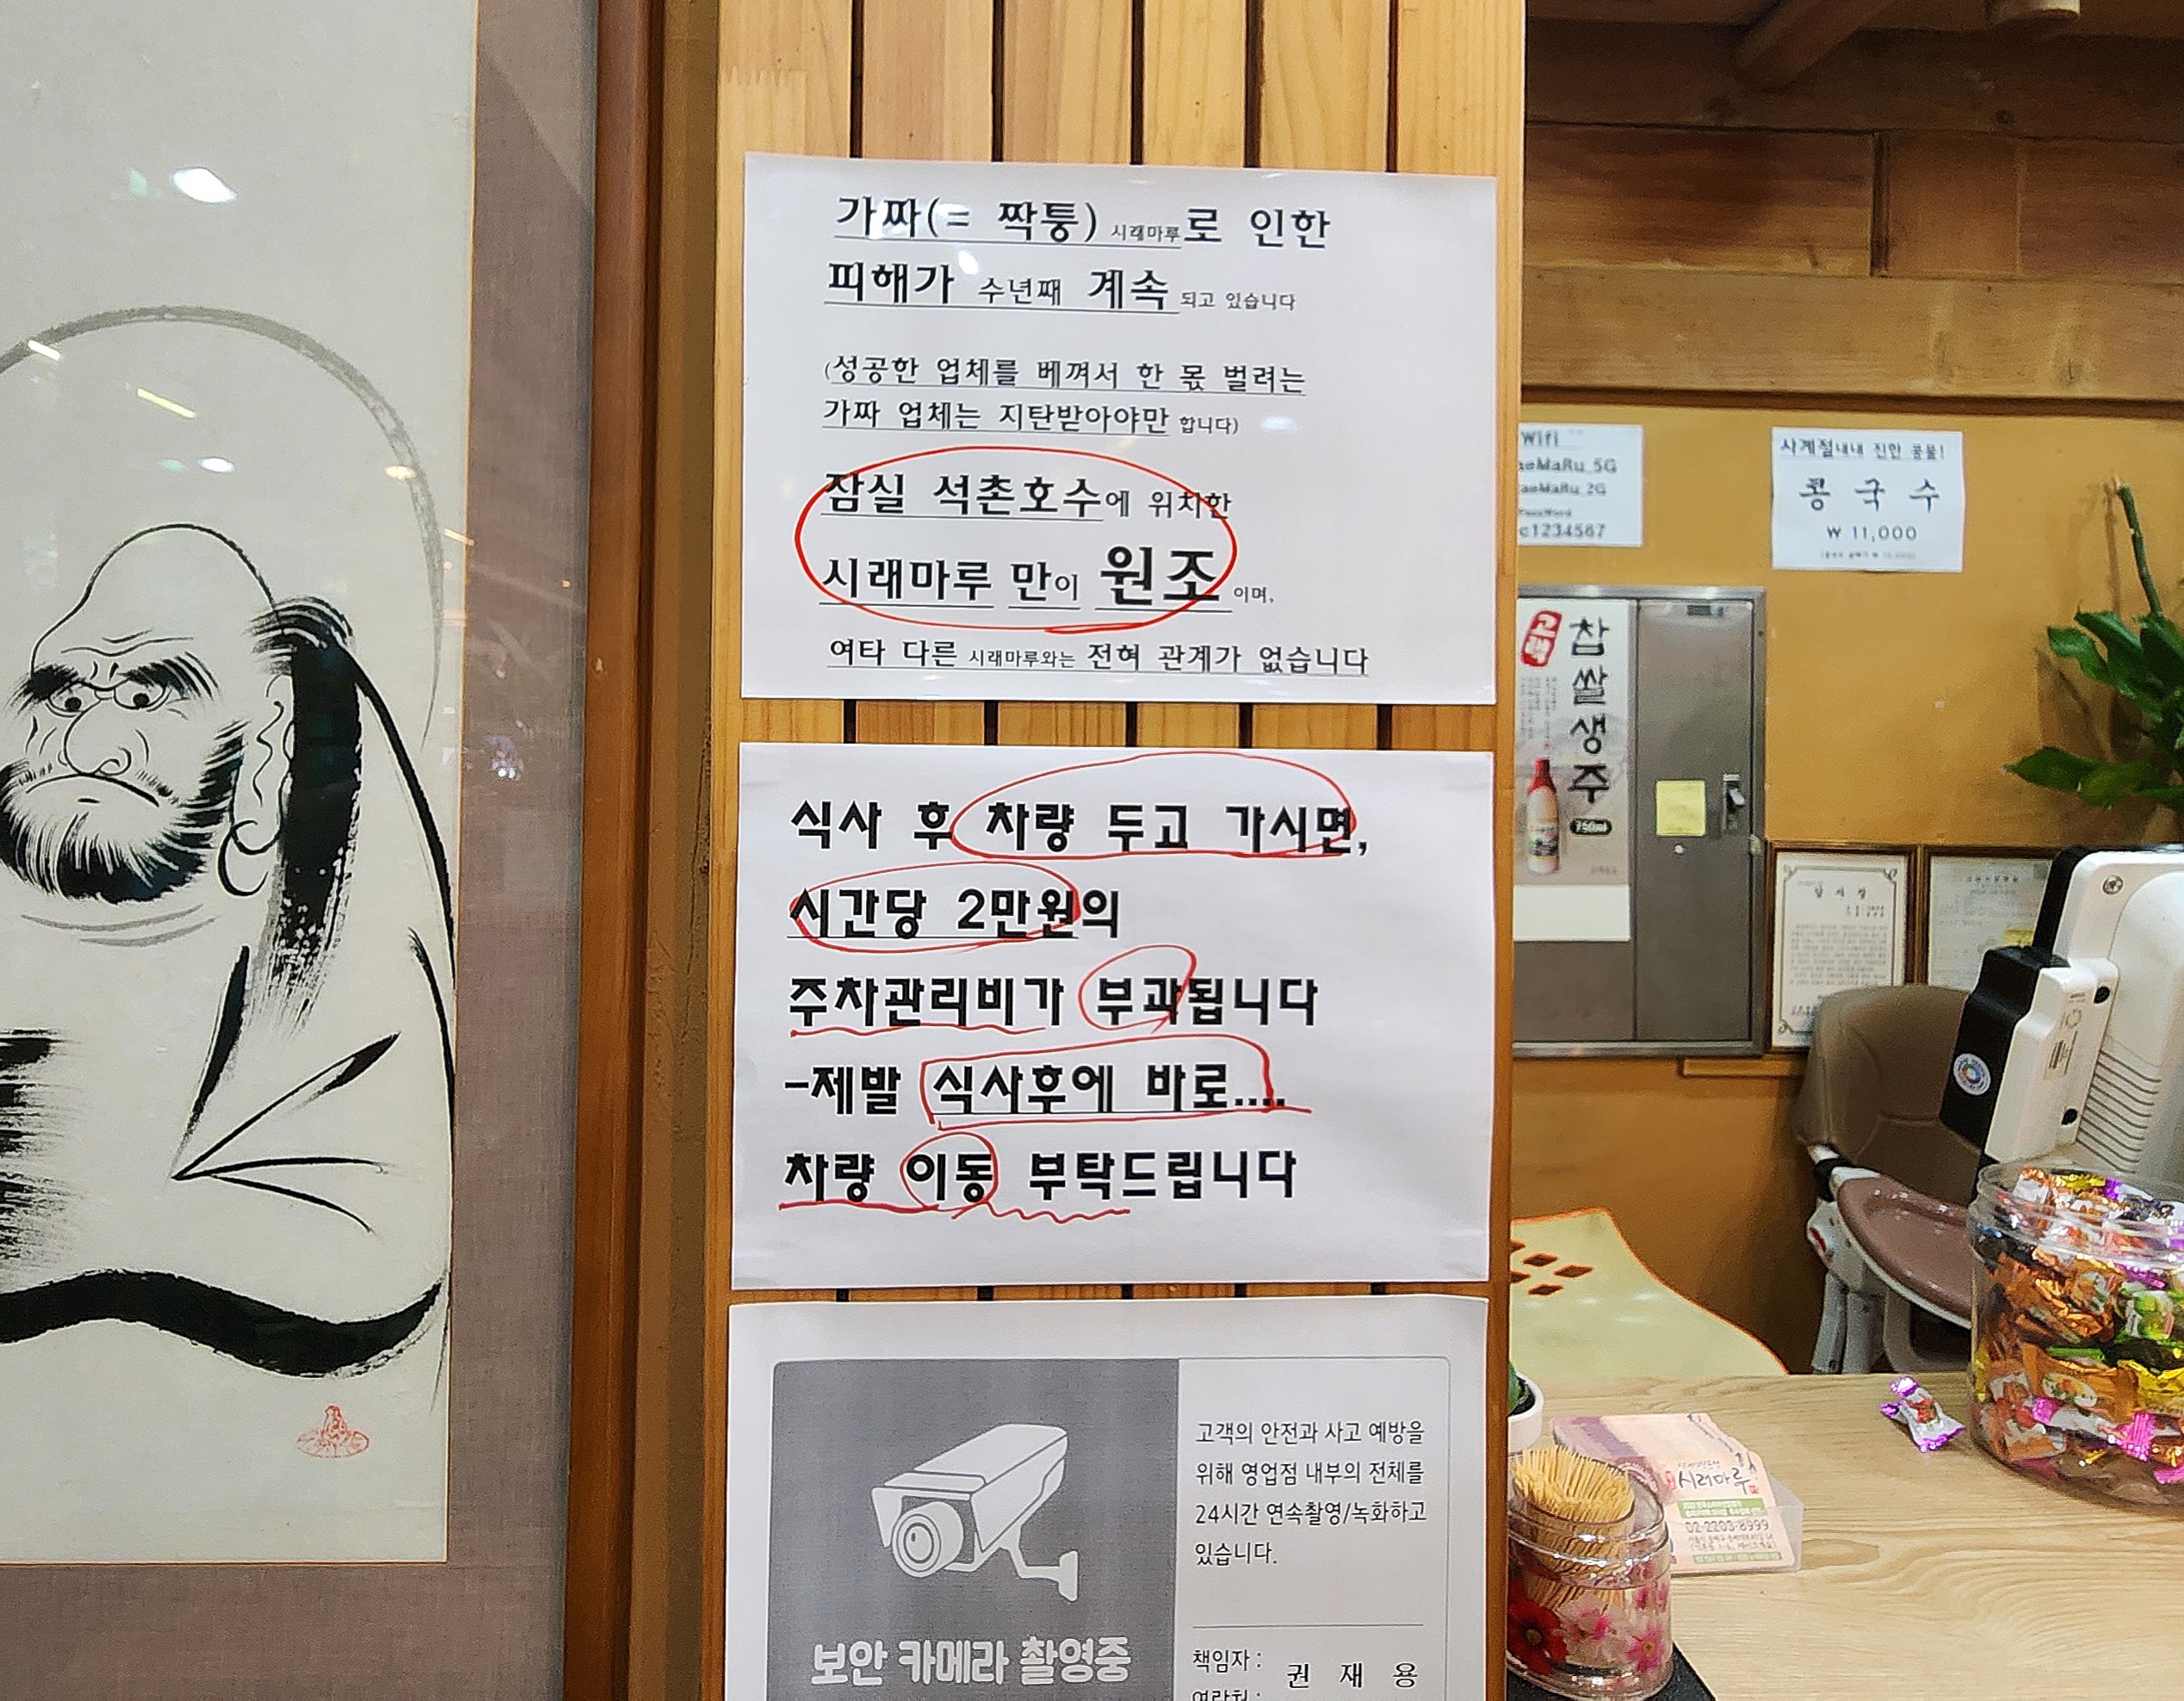 가짜(= 짝퉁) 시래마루로 인한
피해가 수년째 계속 되고 있습니다
(성공한 업체를 베껴서 한 몫 벌려는
가짜 업체는 지탄받아야만 합니다)
잠실 석촌호수에 위치한
시래마루 만이 원조이며,
여타 다른 시래마루와는 전혀 관계가 없습니다
식사 후 차량 두고 가시면,
시간당 2만원의
주차관리비가 부과됩니다
-제발 식사후에 바로....
차량 이동 부탁드립니다
고객의 안전과 사고 예방을
위해 영업점 내부의 전체를
24시간 연속촬영/녹화하고
있습니다.
보안 카메라 촬영중
책임자 : 권 재 용
연락처 :
Wifi
aeMaRu_5G
aeMaRu_2G
c1234567
사계절내내 진한 콩물!
콩 국 수
₩ 11,000
찹쌀생주
750ml
감사장
시래마루
02-2203-8999